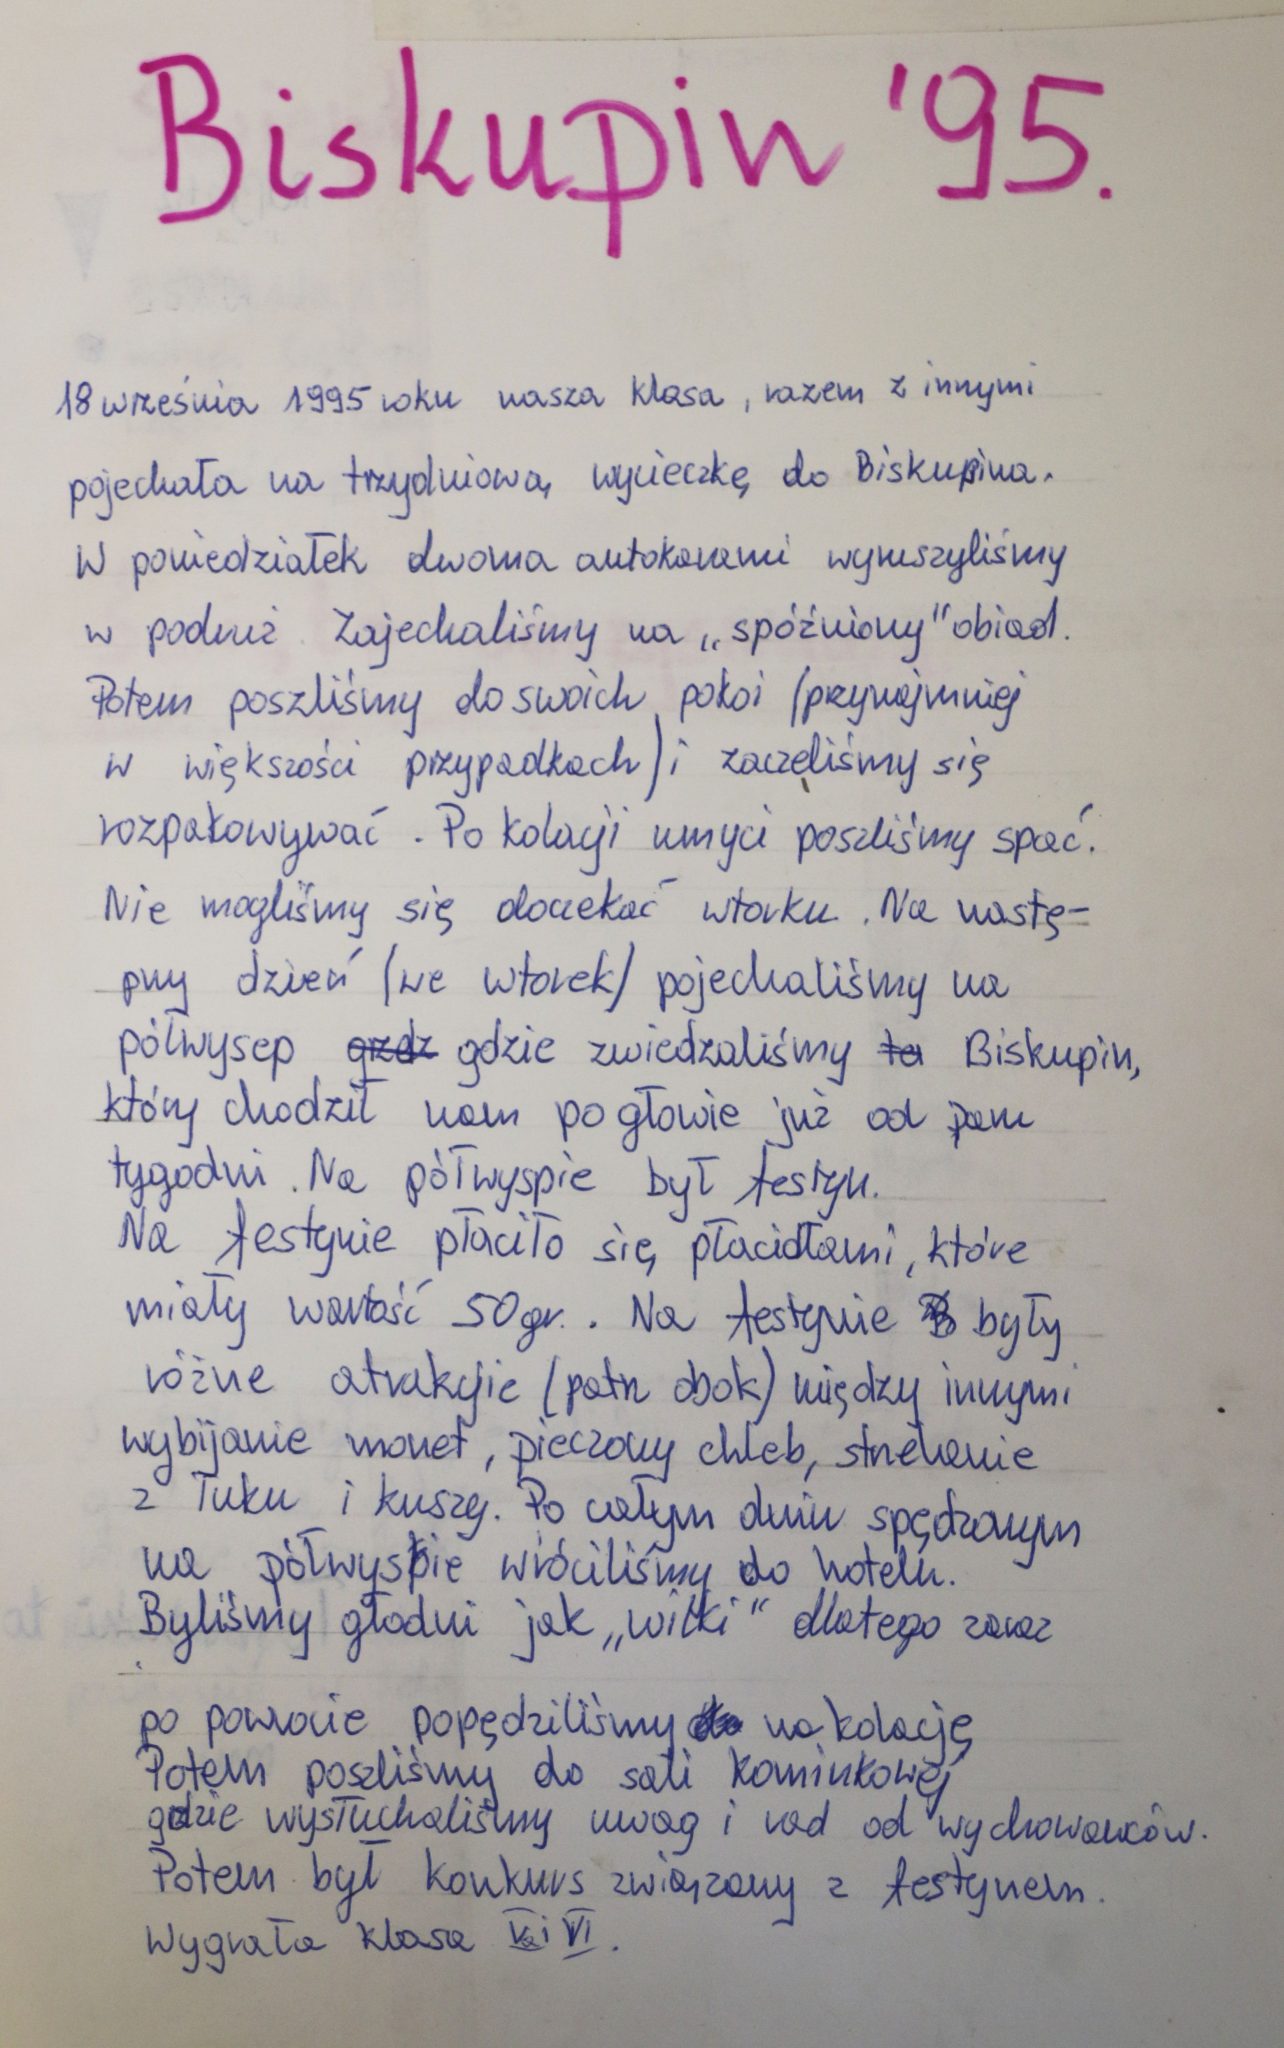 Biskupin '95.
18 września 1995 roku nasza klasa, razem z innymi
pojechała na trzydniową wycieczkę do Biskupina.
W poniedziałek dwoma autokarami wyruszyliśmy
w podruż. Zajechaliśmy na „spóźniony" obiad.
Potem poszliśmy do swoich pokoi (przynajmniej
w większości przypadkach) i zaczęliśmy się
rozpakowywać. Po kolacji umyci poszliśmy spać.
Nie mogliśmy się doczekać wtorku. Na nastę-
pny dzień (we wtorek) pojechaliśmy na
półwysep gdzie zwiedzaliśmy Biskupin,
który chodził nam po głowie już od paru
tygodni. Na półwyspie był festyn.
Na festynie płaciło się płacidłami, które
miały wartość 50gr.. Na festynie były
różne atrakcjie (patrz obok) między innymi
wybijanie monet, pieczony chleb, strzelanie
z łuku i kuszy. Po całym dniu spędzonym
na półwyspie wróciliśmy do hotelu.
Byliśmy głodni jak „wilki" dlatego zaraz
po powrocie popędziliśmy na kolację
Potem poszliśmy do sali kominkowej
gdzie wysłuchaliśmy uwag i rad od wychowawców.
Potem był konkurs związany z festynem.
Wygrała klasa Va i VI.